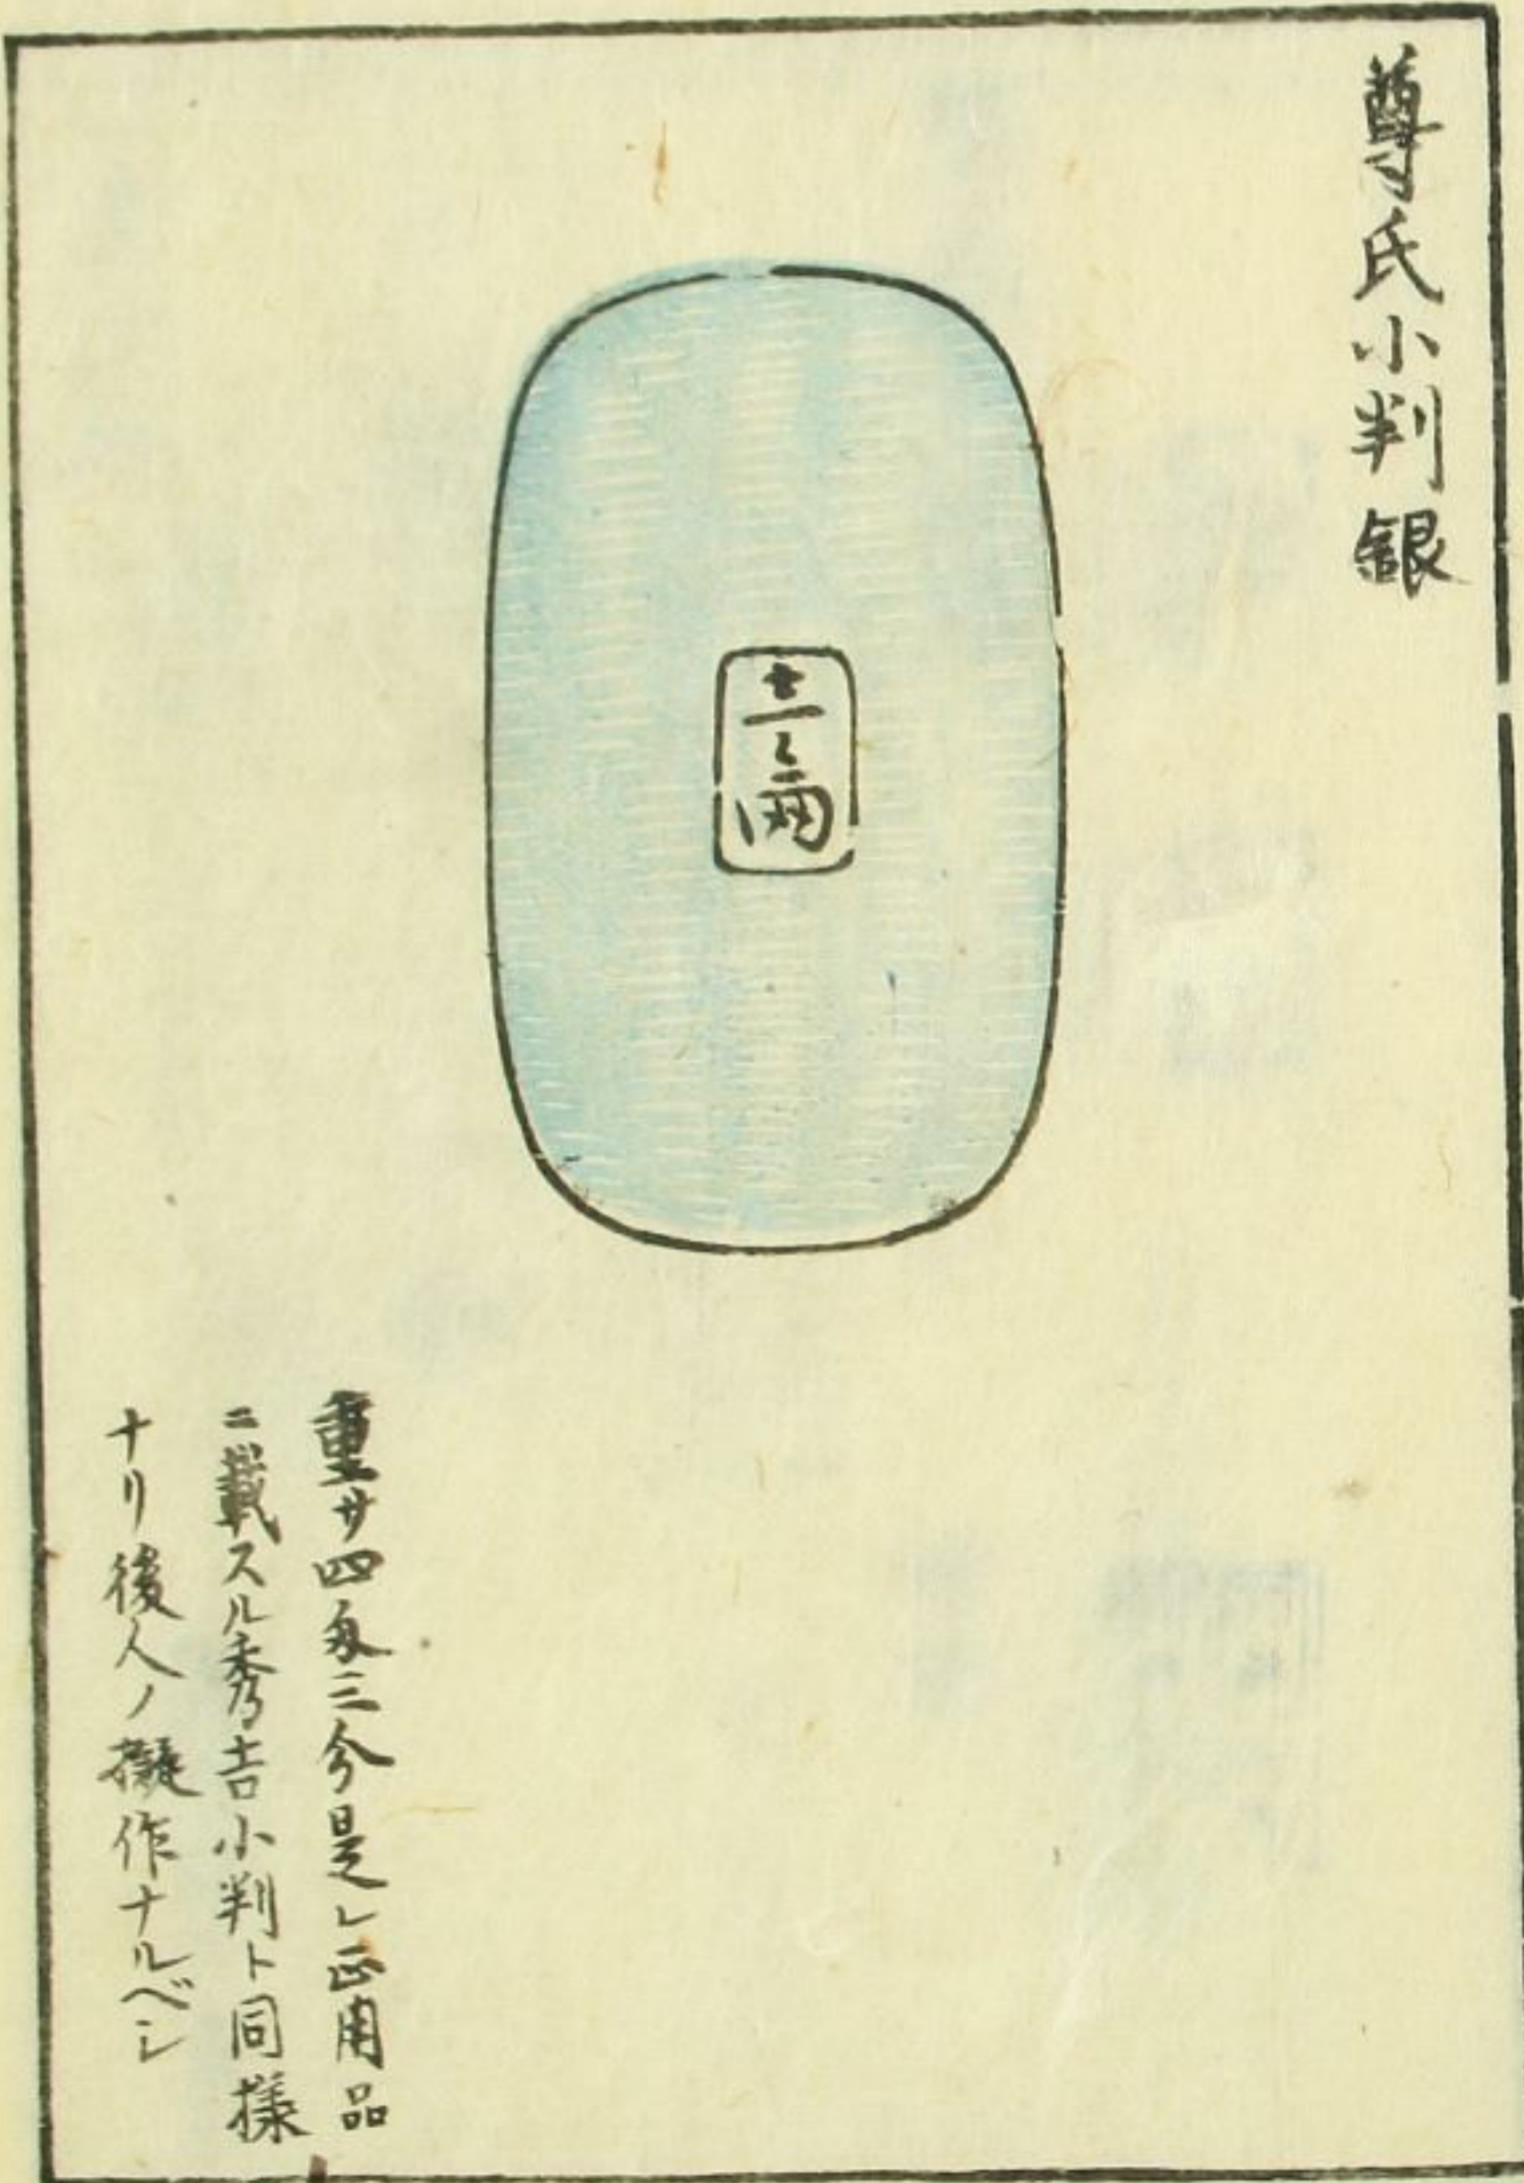 尊氏小判銀
両
重サ四匁三分是レ正用品
ニ載スル秀吉小判ト同様
ナリ後人ノ擬作ナルベシ